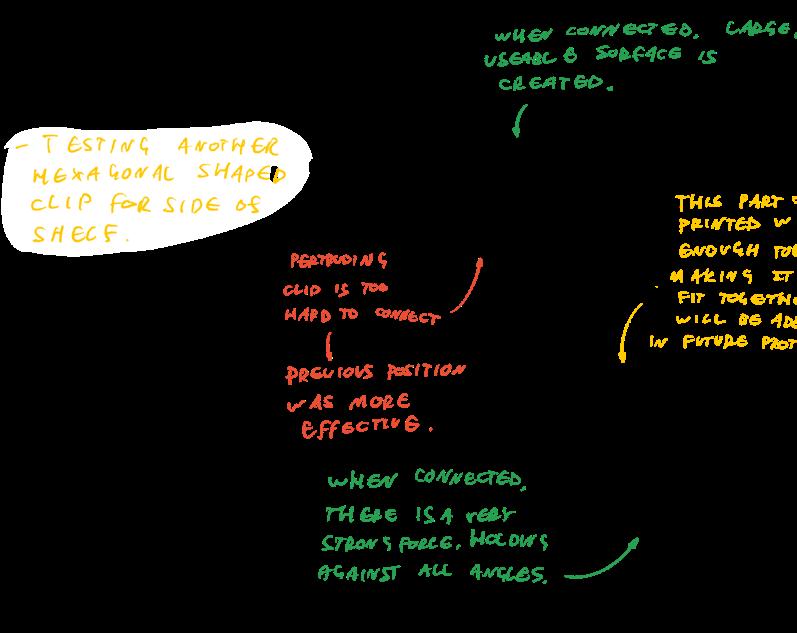 WHEN CONNECTED, LARGE,
USEABLE SURFACE IS
CREATED.
- TESTING ANOTHER
HEXAGONAL SHAPED
CLIP FOR SIDE OF
SHELF.
THIS PART
PRINTED W
ENOUGH
MAKING IT
FIT TOGETHE
WILL BE ADD
IN FUTURE PROT
PERTRUDING
CLIP IS TOO
HARD TO CONNECT
PREVIOUS POSITION
WAS MORE
EFFECTIVE.
WHEN CONNECTED,
THERE IS A VERY
STRONG FORCE, HOLDING
AGAINST ALL ANGLES.